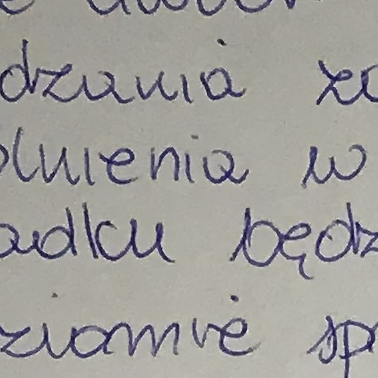 dzania ze
olnienia w
adku będz
ziomie sp